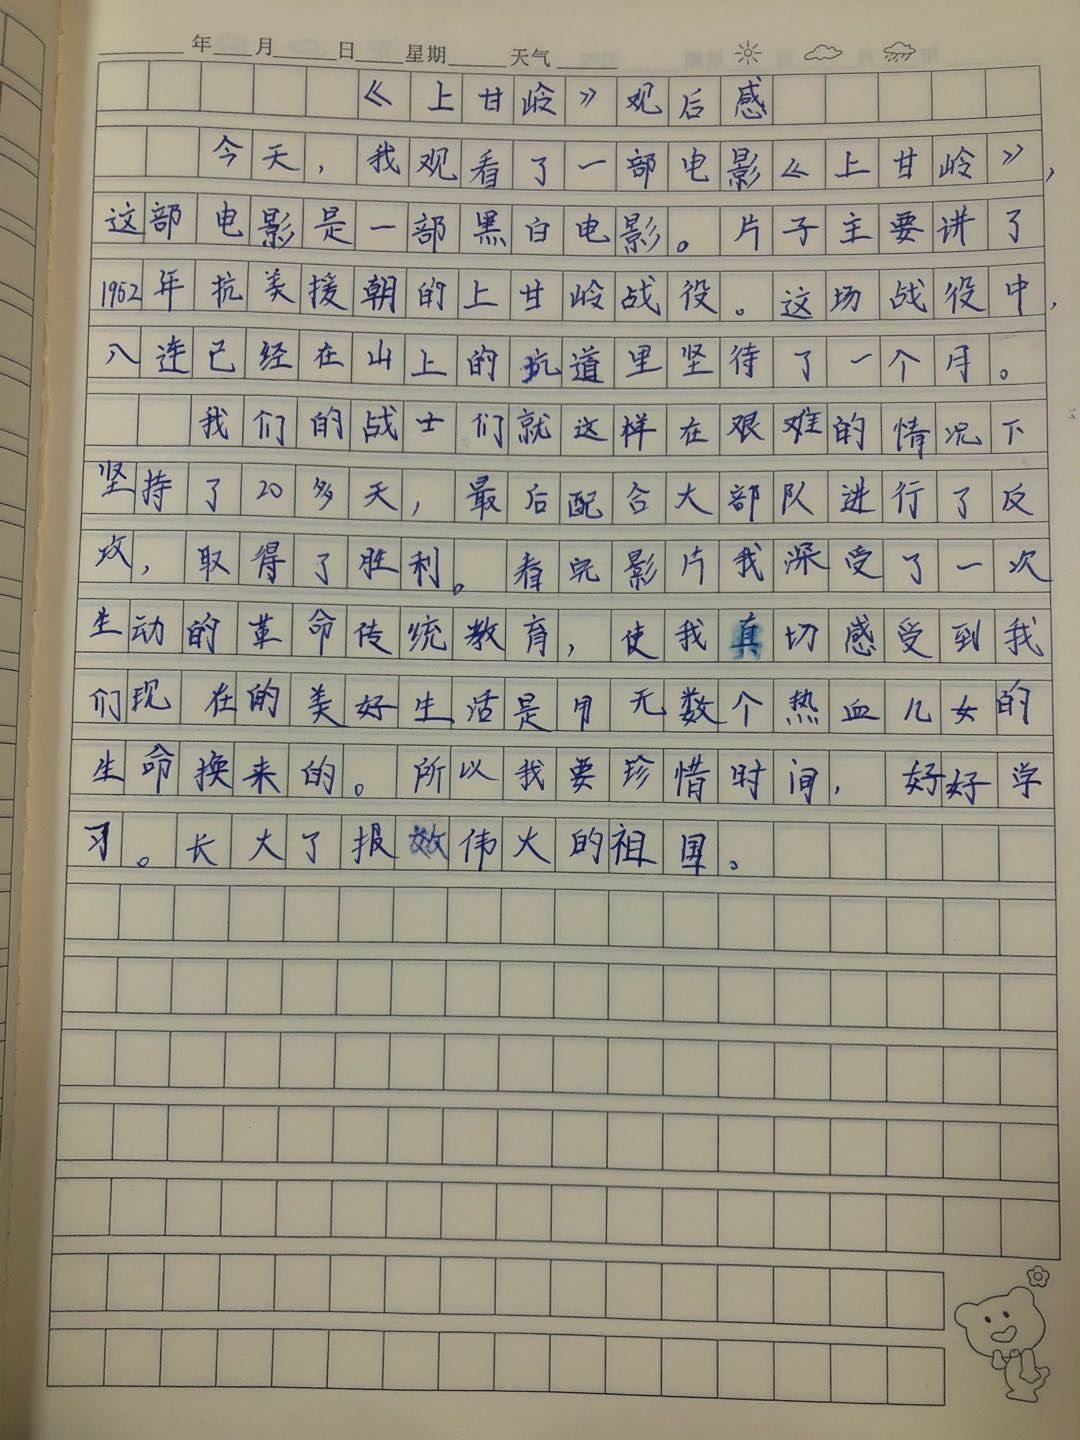 年 月 日 星期 天气
《上甘岭》观后感
今天,我观看了一部电影《上甘岭》,
这部电影是一部黑白电影。片子主要讲了
1952年抗美援朝的上甘岭战役。这场战役中,
八连已经在山上的坑道里坚待了一个月。
我们的战士们就这样在艰难的情况下
坚持了20多天,最后配合大部队进行了反
攻,取得了胜利。看完影片我深受了一次
生动的革命传统教育,使我真切感受到我
们现在的美好生活是用无数个热血儿女的
生命换来的。所以我要珍惜时间,好好学
习。长大了报效伟大的祖国。